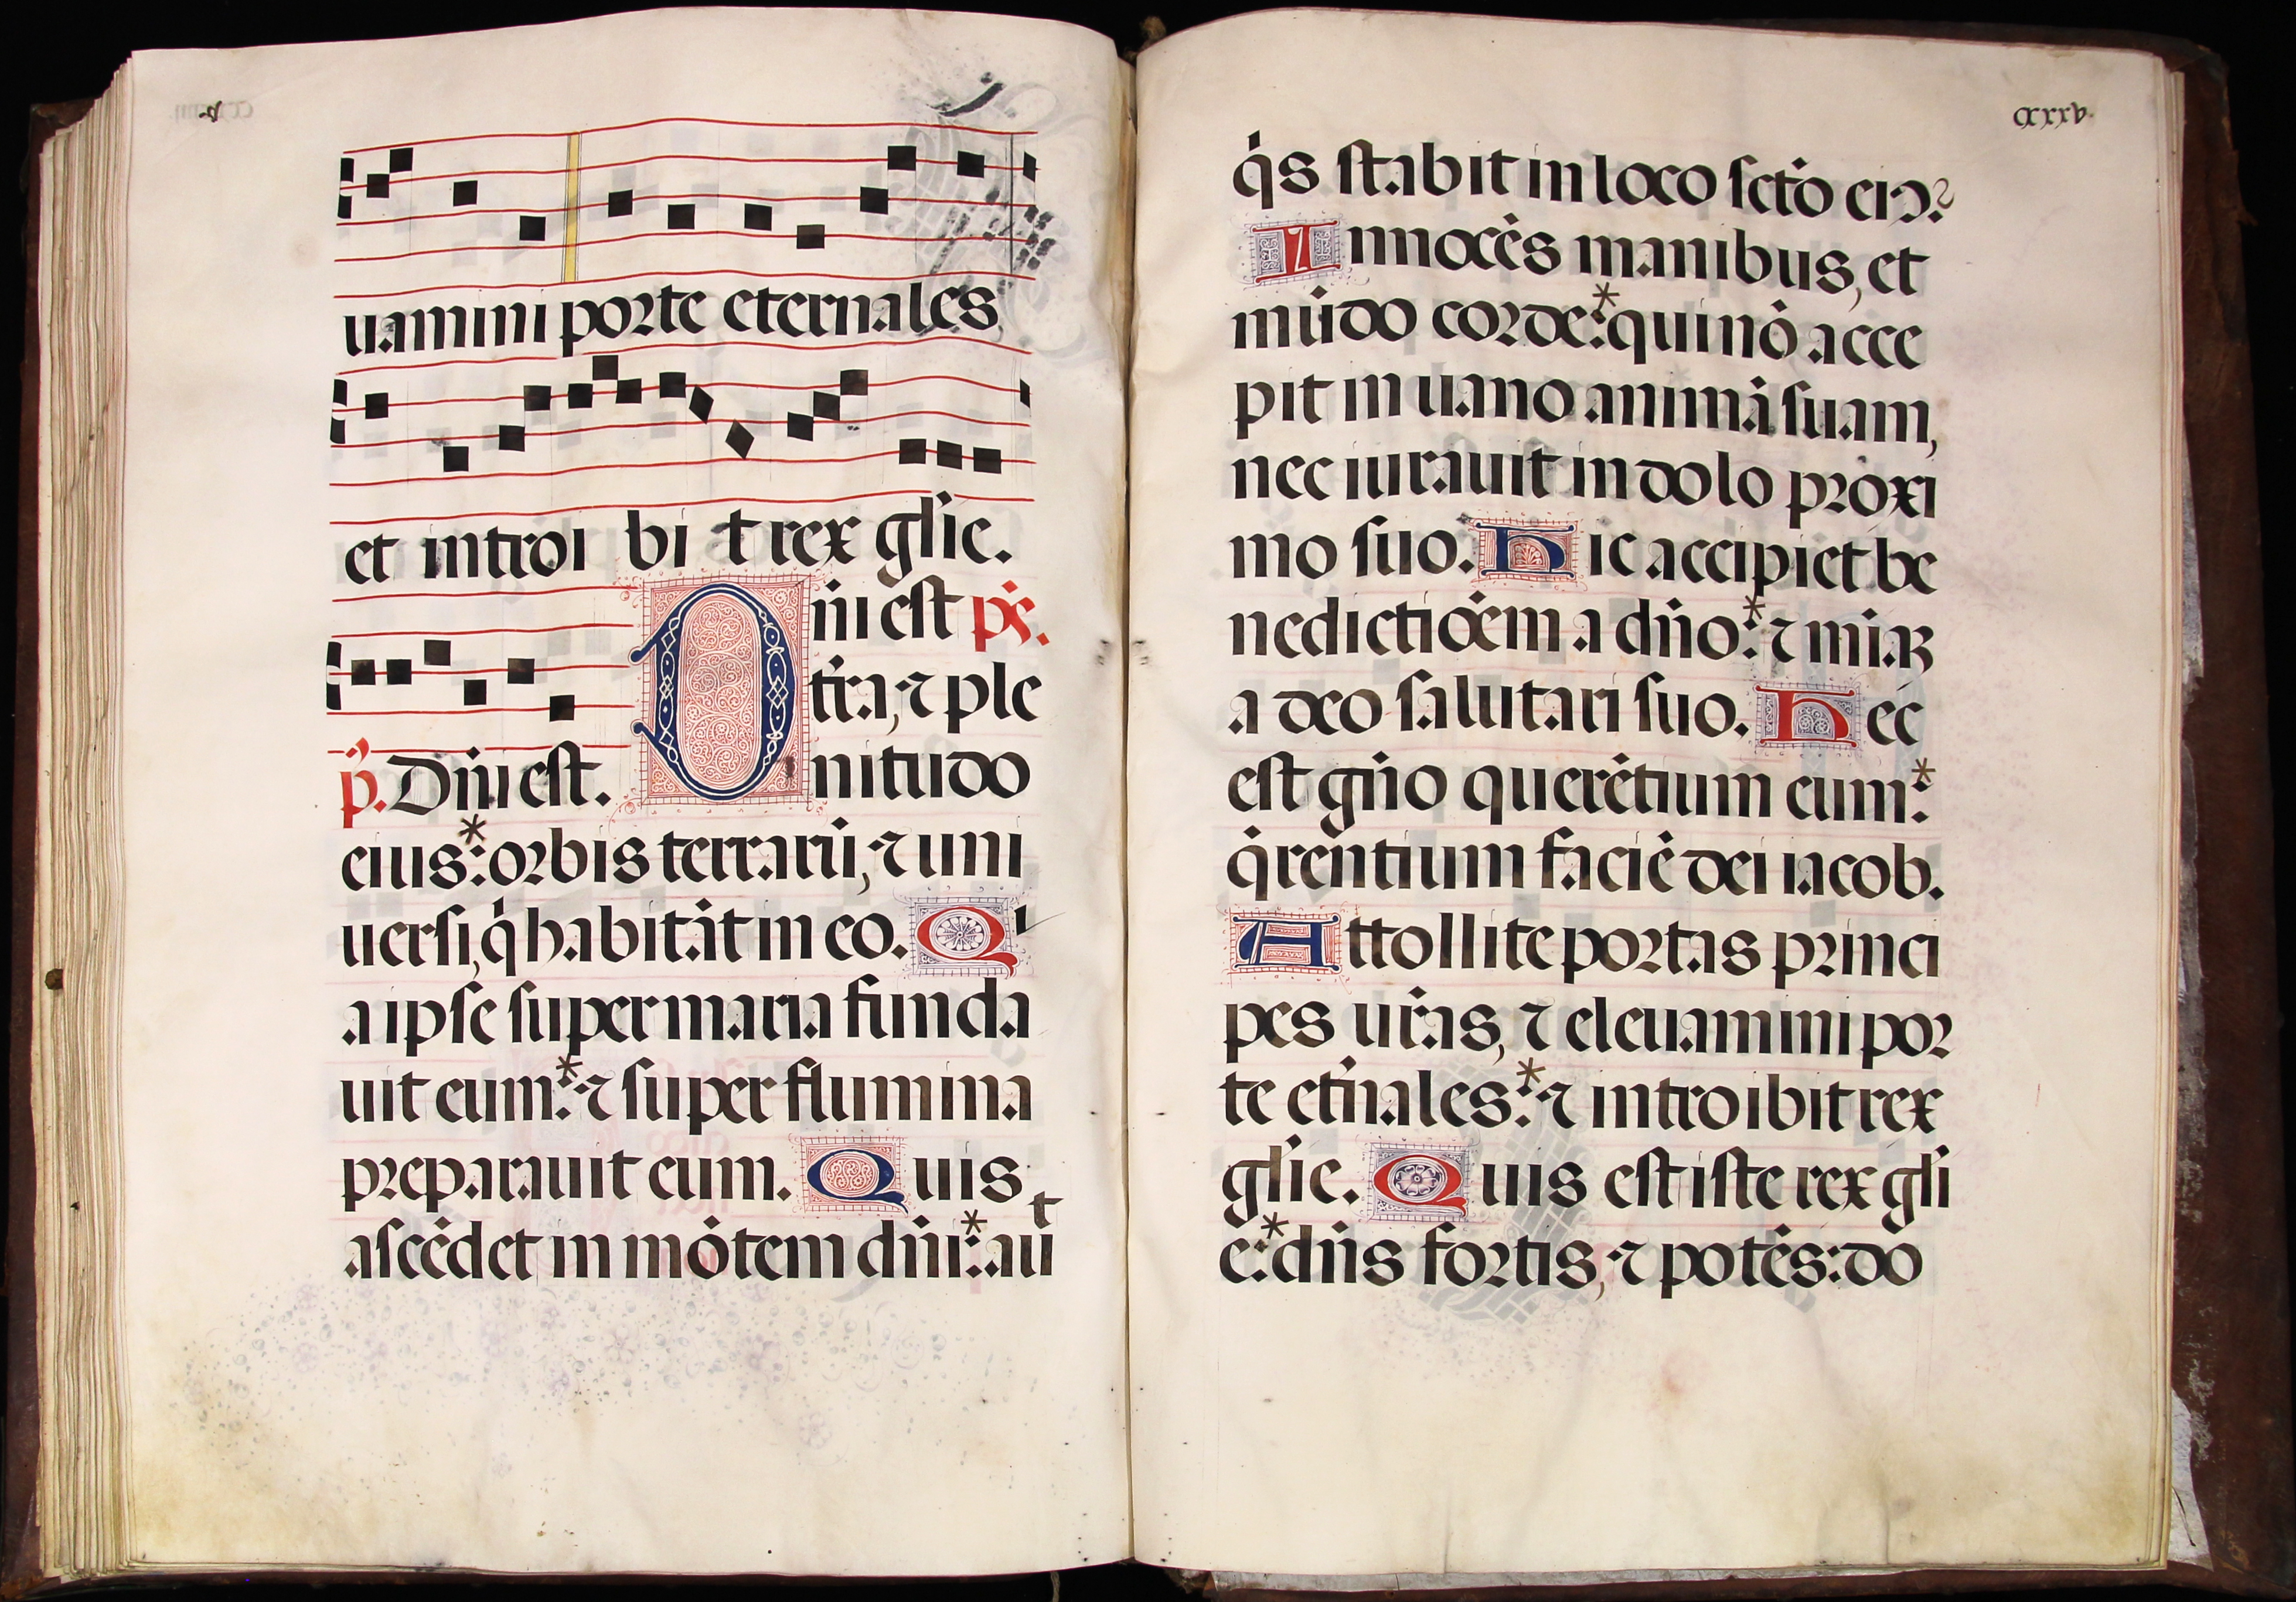 uamini porte eternales
et introi bi t rex gl̃ie.
ñi est ps̃.
t̃ra, ⁊ ple
p̃. Dñi est. nitudo
eius:* orbis terrarũ, ⁊ uni
uersi, q̃ habitãt in eo. Qi
a ipse super maria funda
uit eum:* ⁊ super flumina
preparauit eum. Quis
ascẽdet in mõtem dñi:* aut
cxxxv.
q̇s stabit in loco sctõ eiꝰ?
Innocẽs manibus, et
mũdo corde:* qui nõ acce
pit in uano animã suam,
nec iurauit in dolo proxi
mo suo. Hic accipiet be
nedictiõem a dño:* ⁊ miãꝫ
a deo salutari suo. Hec
est gñio querẽtium eum:*
q̃rentium faciẽ dei iacob.
Attollite portas princi
pes ur̃as, ⁊ eleuamini por
te et̃nales:* ⁊ introibit rex
gl̃ie. Quis est iste rex gl̃i
e:* dñs fortis, ⁊ potẽs: do